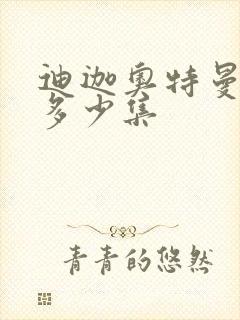 迪迦奥特曼
多少集
青青的悠然